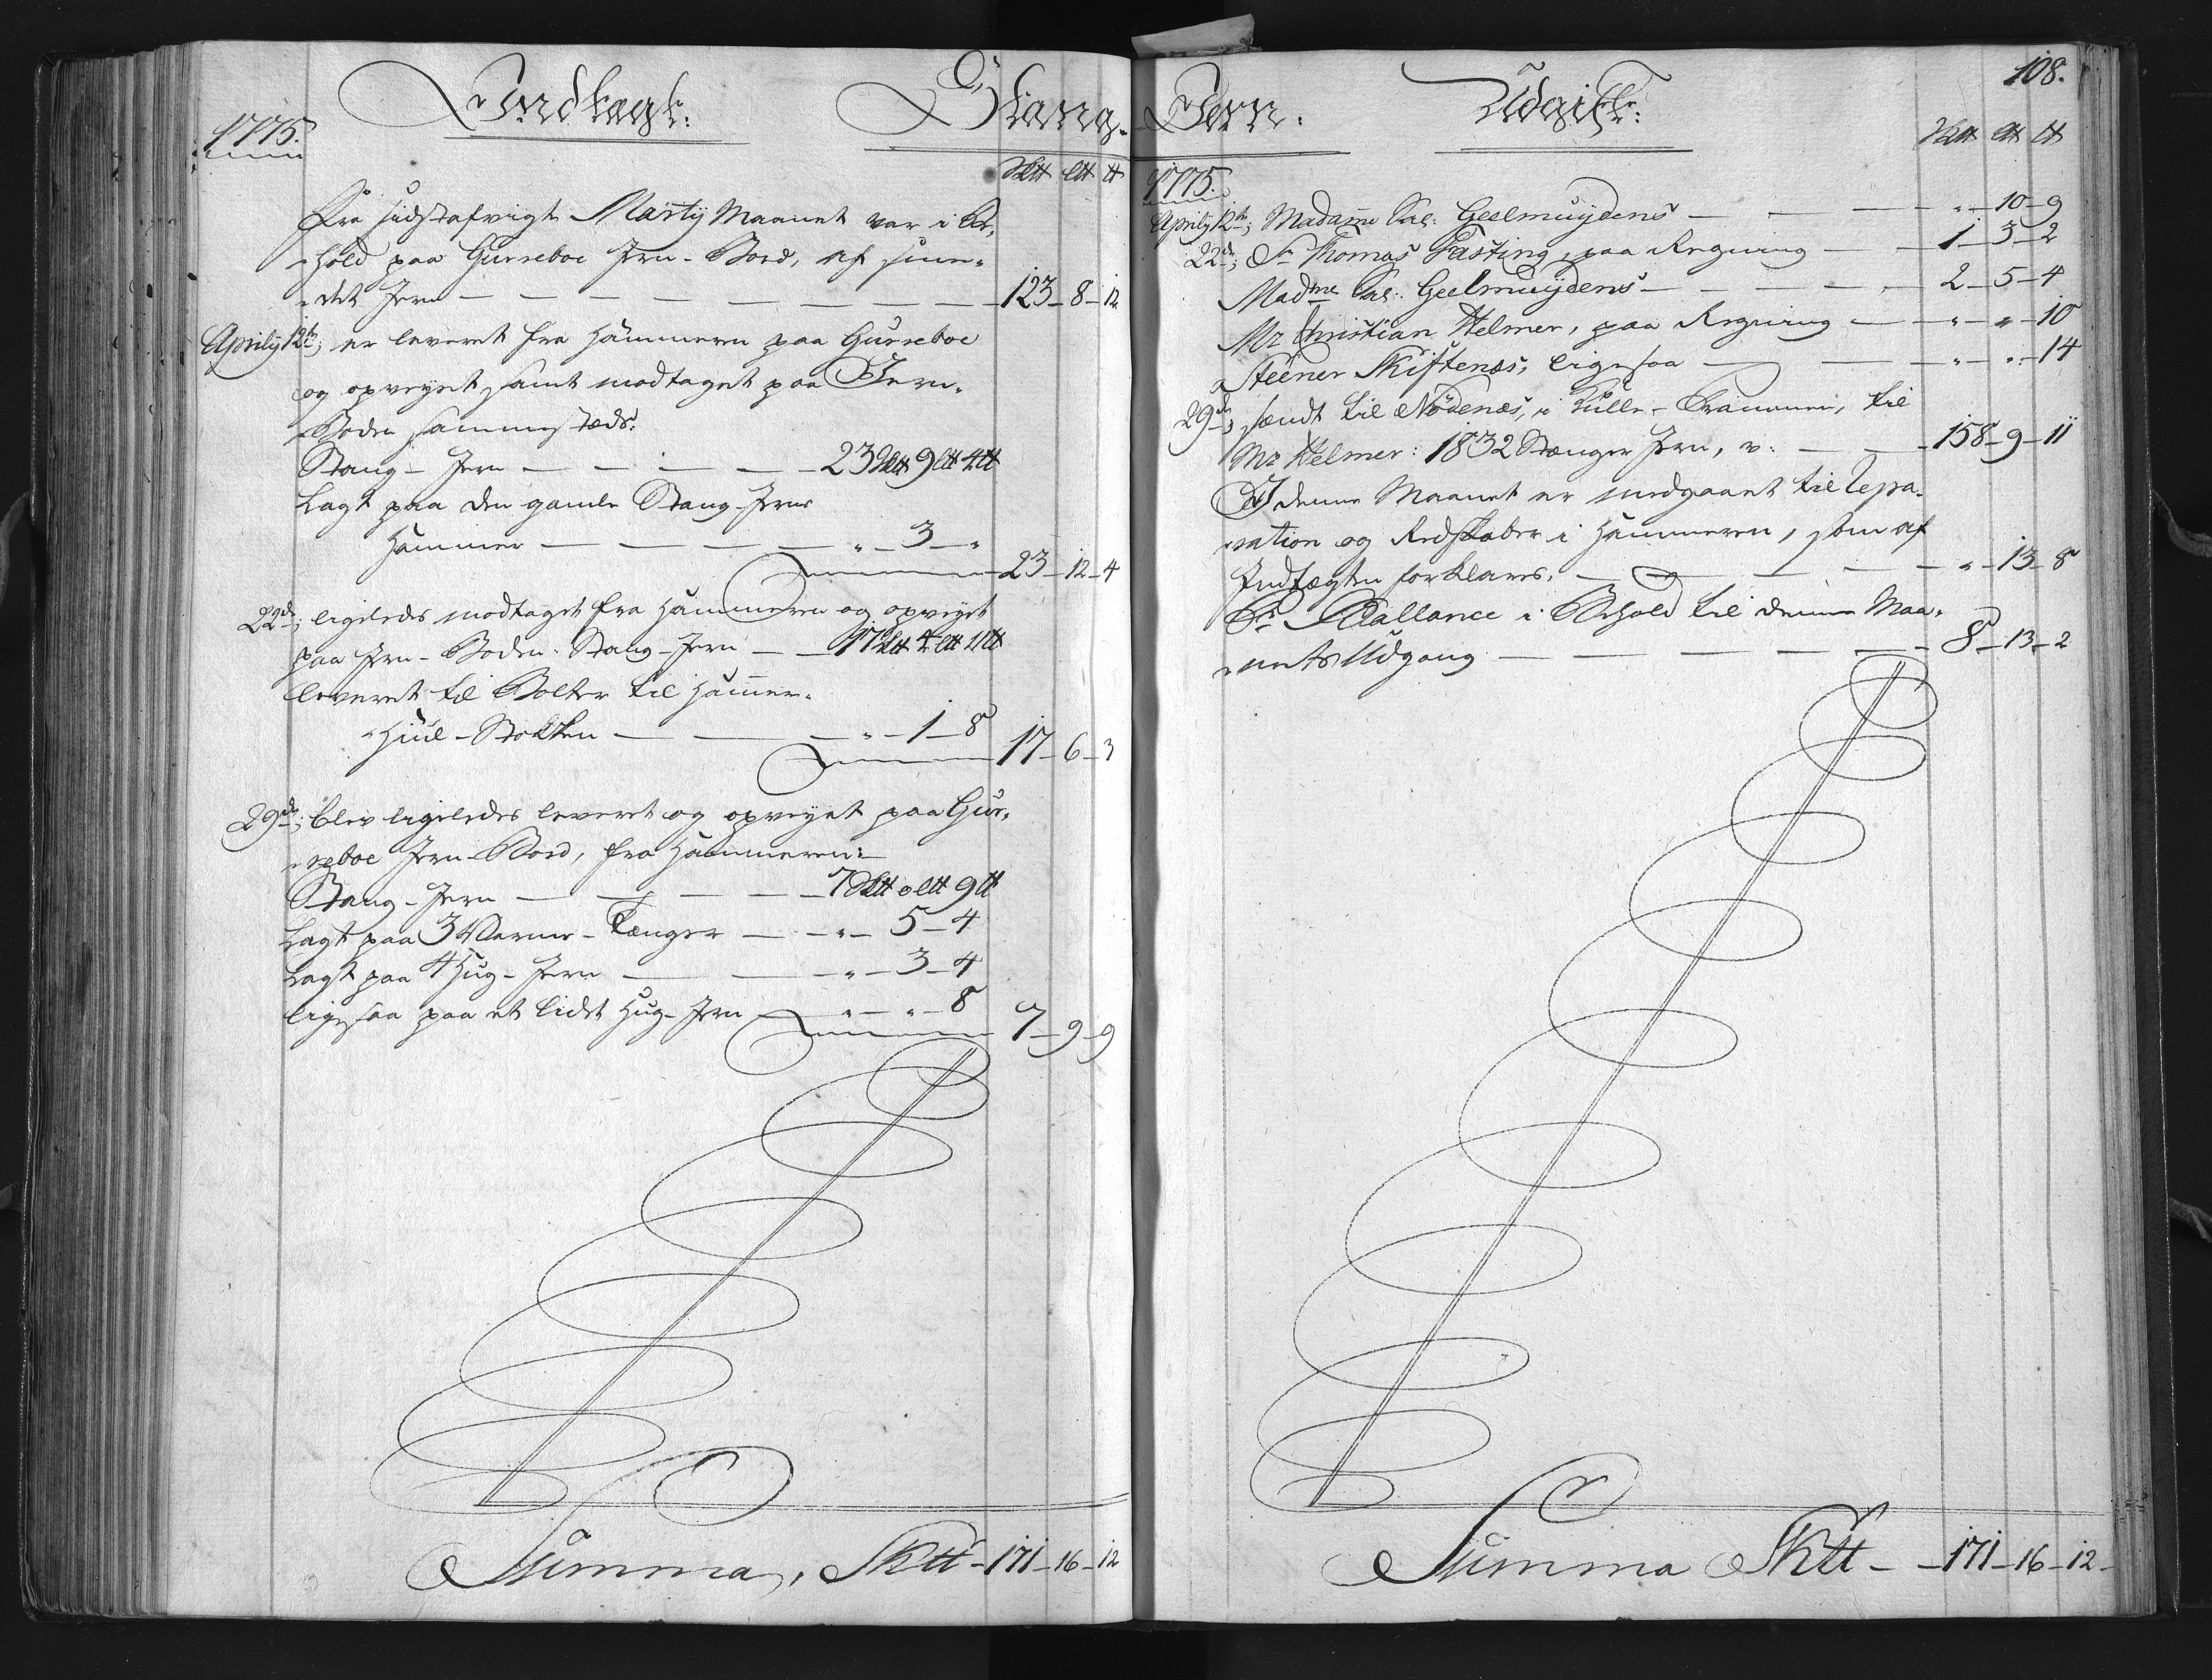 Indtægt:
Stang-
1775.
Sktt Ltt tt
Fra sidstafvigte Martÿ Maanet var i Be-
hold paa Gurreboe Jern-Boed, af smee-
det Jern — 123 — 8 — 12
Aprilÿ 12te; er leveret fra Hammeren paa Gurreboe
og opveyet samt modtaget paa Jern-
Boden sammestæds:
Stang-Jern — 23 Sktt 9 Ltt 4 tt
Lagt paa den gamle Stang-Jerns
Hammer — " — 3 — "
23 — 12 — 4
22de; ligeledes modtaget fra Hammeren og opveyet
paa Jern-Boden: Stang-Jern — 17 Sktt 4 Ltt 11 tt
leveret til Bolter til Hammer-
Hiul-Stokken — " — 1 — 8
17 — 6 — 3
29de; blev ligeledes leveret og opveyet paa Gur-
reboe Jern-Boed, fra Hammeren:
Stang-Jern — 7 Sktt 0 Ltt 9 tt
Lagt paa 3 Varme-Tænger — " — 5 — 4
Lagt paa 4 Hug-Jern — " — 3 — 4
ligesaa paa et lidet Hug-Jern — " — " — 8
7 — 9 — 9
Summa, Sktt — 171 — 16 — 12
108.
Jern.
Udgift:
Sktt Ltt tt
1775.
Aprilÿ 12te; Madame Sal: Geelmuÿdens — " — 10 — 9
22de; Sr Thomas Fasting, paa Regning — 1 — 5 — 2
Madme Sal: Geelmuÿdens — 2 — 5 — 4
Mr Christian Helmer, paa Regning — " — " — 10
Steener Skiftenæs, ligesaa — " — " — 14
29de; sendt til Nødenæs, i Kulle-Prammen, til
Mr Helmer: 1832 Stænger Jern, v: — 158 — 9 — 11
I denne Maanet er medgaaet til Repa-
ration og Redskaber i Hammeren, som af
Indtægten forklares. — " — 13 — 8
Pr Ballance i Behold til denne Maa-
nets Udgang — 8 — 13 — 2
Summa Sktt — 171 — 16 — 12